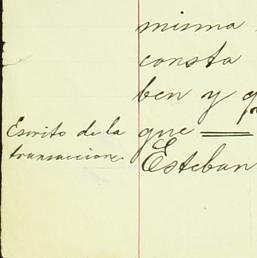 misma
consta
ben y q
Escrito de la
transaccion.
que
Esteban